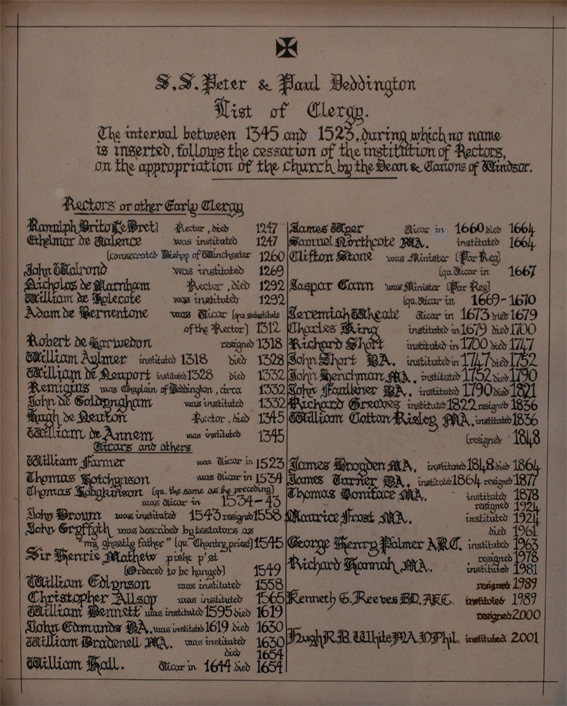 S.S. Peter & Paul Deddington
List of Clergy.
The interval between 1345 and 1523, during which no name
is inserted, follows the cessation of the institution of Rectors,
on the appropriation of the church by the Dean & Canons of Windsor.
Rectors or other Early Clergy
Ranulph Brito (Le Bret) Rector, died 1247
Ethelmar de Valence was instituted 1247
(consecrated Bishop of Winchester 1260
John Walrond was instituted 1269
Nicholas de Marnham Rector, died 1292
William de Holecote was instituted 1292
Adam de Bernentone was Vicar (qu. substitute
of the Rector) 1312
Robert de Harwedon resigned 1318
William Aylmer instituted 1318 died 1328
William de Neuport instituted 1328 died 1332
Remigius was Chaplain of Deddington, circa 1332
John de Goldyngham was instituted 1332
Hugh de Neuton Rector, died 1345
William de Annem was instituted 1345
Vicars and others
William Farmer was Vicar in 1523
Thomas Hotchynson was Vicar in 1534
Thomas Hodgkinson (qu. the same as the preceding)
was Vicar in 1534-43
John Brown was instituted 1543 resigned 1558
John Gryffyth was described by testators as
"my ghostly father" (qu. Chantry priest) 1545
Sir Henrie Mathew pishe p'st
(Ordered to be hanged) 1549
William Edlynson was instituted 1558
Christopher Allsop was instituted 1565
William Bennett was instituted 1595 died 1619
John Edmunds BA. was instituted 1619 died 1630
William Bradenell MA. was instituted 1630
died 1654
William Hall. Vicar in 1644 died 1654
James Wyer Vicar in 1660 died 1664
Samuel Northcote MA. instituted 1664
Clifton Stone was Minister (Par Reg)
(qu. Vicar in 1667
Jaspar Cann was Minister (Par Reg)
(qu. Vicar in 1669-1670
Jeremiah Wheate Vicar in 1673 died 1679
Charles King instituted in 1679 died 1700
Richard Short instituted in 1700 died 1747
John Short BA. instituted in 1747 died 1752
John Henchman, MA. instituted 1752 died 1790
John Faulkner BA. instituted 1790 died 1821
Richard Greaves instituted 1822 resigned 1836
William Cotton Risley MA. instituted 1836
(resigned 1848
James Brogden MA. instituted 1848 died 1864
James Turner BA. instituted 1864 resigned 1877
Thomas Boniface MA. instituted 1878
resigned 1924
Maurice Frost MA. instituted 1924
died 1961
George Henry Palmer AKC. instituted 1963
resigned 1978
Richard Hannah, MA. instituted 1981
resigned 1989
Kenneth G. Reeves BD. AKC. instituted 1989
resigned 2000
Hugh R.B. White MA. DPhil. instituted 2001